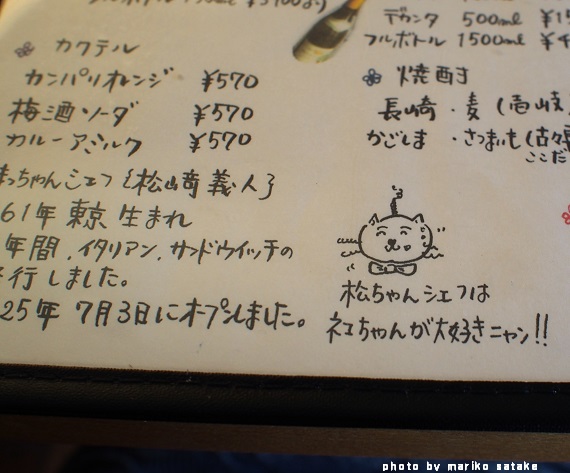 フルボトル 750ml ¥3100より
カクテル
カンパリオレンジ ¥570
梅酒ソーダ ¥570
カルーアミルク ¥570
まっちゃんシェフ{松崎義人}
61年東京生まれ
年間、イタリアン、サンドウイッチの
行しました。
25年7月3日にオープンしました。
デカンタ 500ml ¥15
フルボトル 1500ml ¥4
焼酎
長崎・麦(壱岐
かごしま・さつまいも(古々
ここだ
松ちゃんシェフは
ネコちゃんが大好きニャン!!
photo by mariko satake